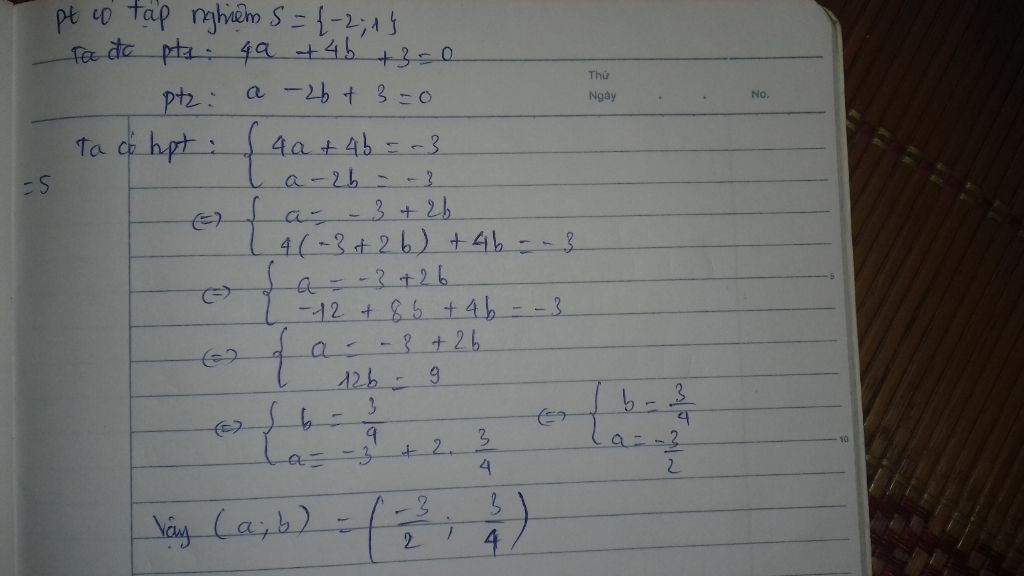 pt có tập nghiệm S = {-2; 1}
Ta đc pt1: 4a + 4b + 3 = 0
Thứ
Ngày . . No.
pt2: a - 2b + 3 = 0
Ta có hpt: { 4a + 4b = -3
a - 2b = -3
= S
(=) { a = -3 + 2b
4(-3 + 2b) + 4b = -3
(=) { a = -3 + 2b
-12 + 8b + 4b = -3
5
(=) { a = -3 + 2b
12b = 9
(=) { b = 3/4
a = -3 + 2. 3/4
(=) { b = 3/4
a = -3/2
10
Vậy (a; b) = (-3/2; 3/4)